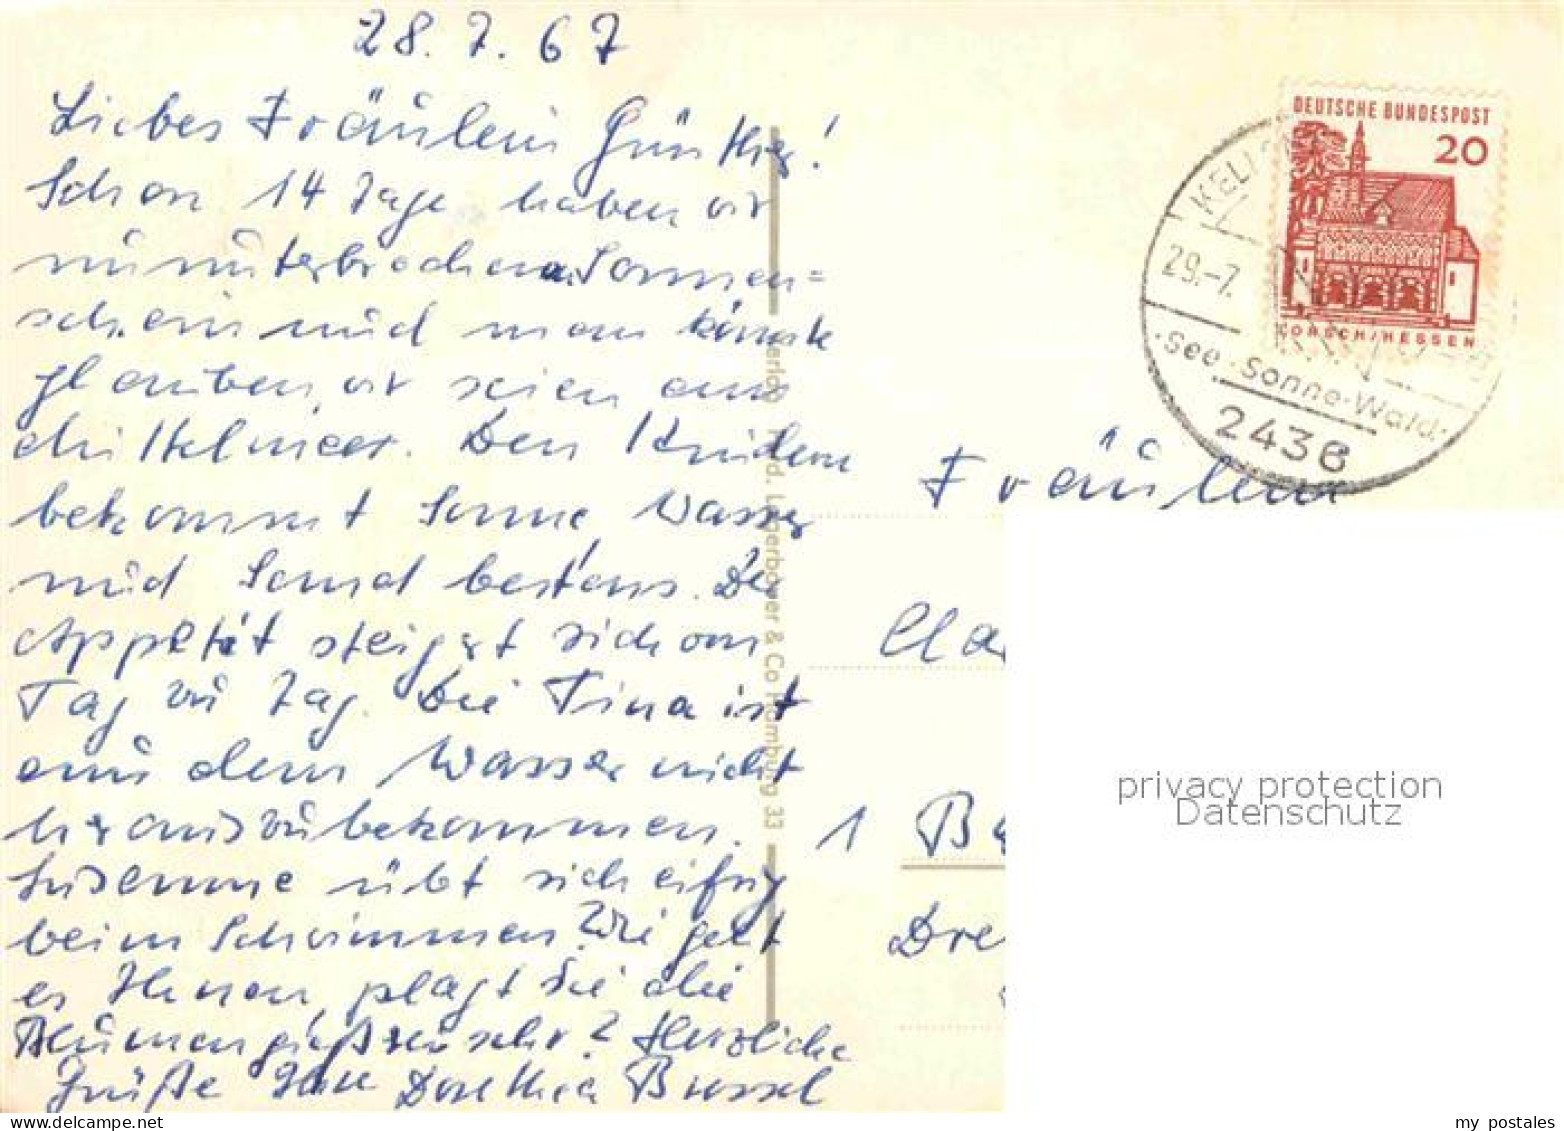 28.7.67
Liebes Fräulein Günther!
Schon 14 Tage haben wir
ununterbrochen Sonnen=
schein und man könnte
glauben, wir seien am
Mittelmeer. Den Kindern
bekommt Sonne, Wasser
und Sand bestens. Der
Appetit steigert sich von
Tag zu Tag. Die Tina ist
aus dem Wasser nicht
herauszubekommen.
Susanne übt sich eifrig
beim Schwimmen. Wie geht
es Ihnen, plagt Sie die
Blumengießerei sehr? Herzliche
Grüße Ihre Dorothea
DEUTSCHE BUNDESPOST
20
LORSCH/HESSEN
KELL
29.-7.
·See·Sonne·Wald·
2436
Fräulein
Cla
1 B
Dre
& Co Hamburg 33
privacy protection
Datenschutz
my postales